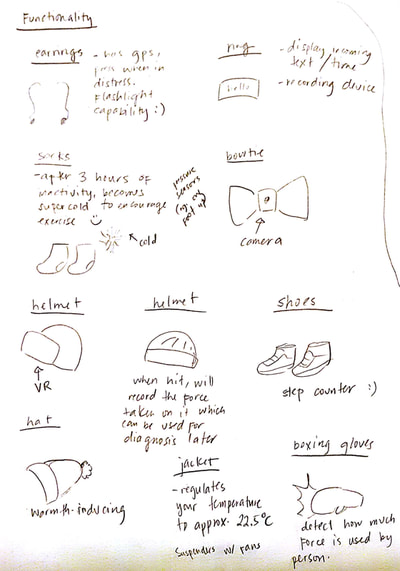 Functionality
earrings
- has gps,
when in
distress.
flashlight
capability :)
ring
- display incoming
text / time
- recording device
hello
socks
- after 3 hours of
inactivity, becomes
supercold to encourage
exercise
cold
pressure
sensors
bowtie
camera
helmet
VR
helmet
when hit, will
record the force
taken on it which
can be used for
diagnosis later
shoes
step counter :)
hat
warmth-inducing
jacket
- regulates
your temperature
to approx. 22.5°C
suspenders w/ fans
boxing gloves
detect how much
force is used by
person.